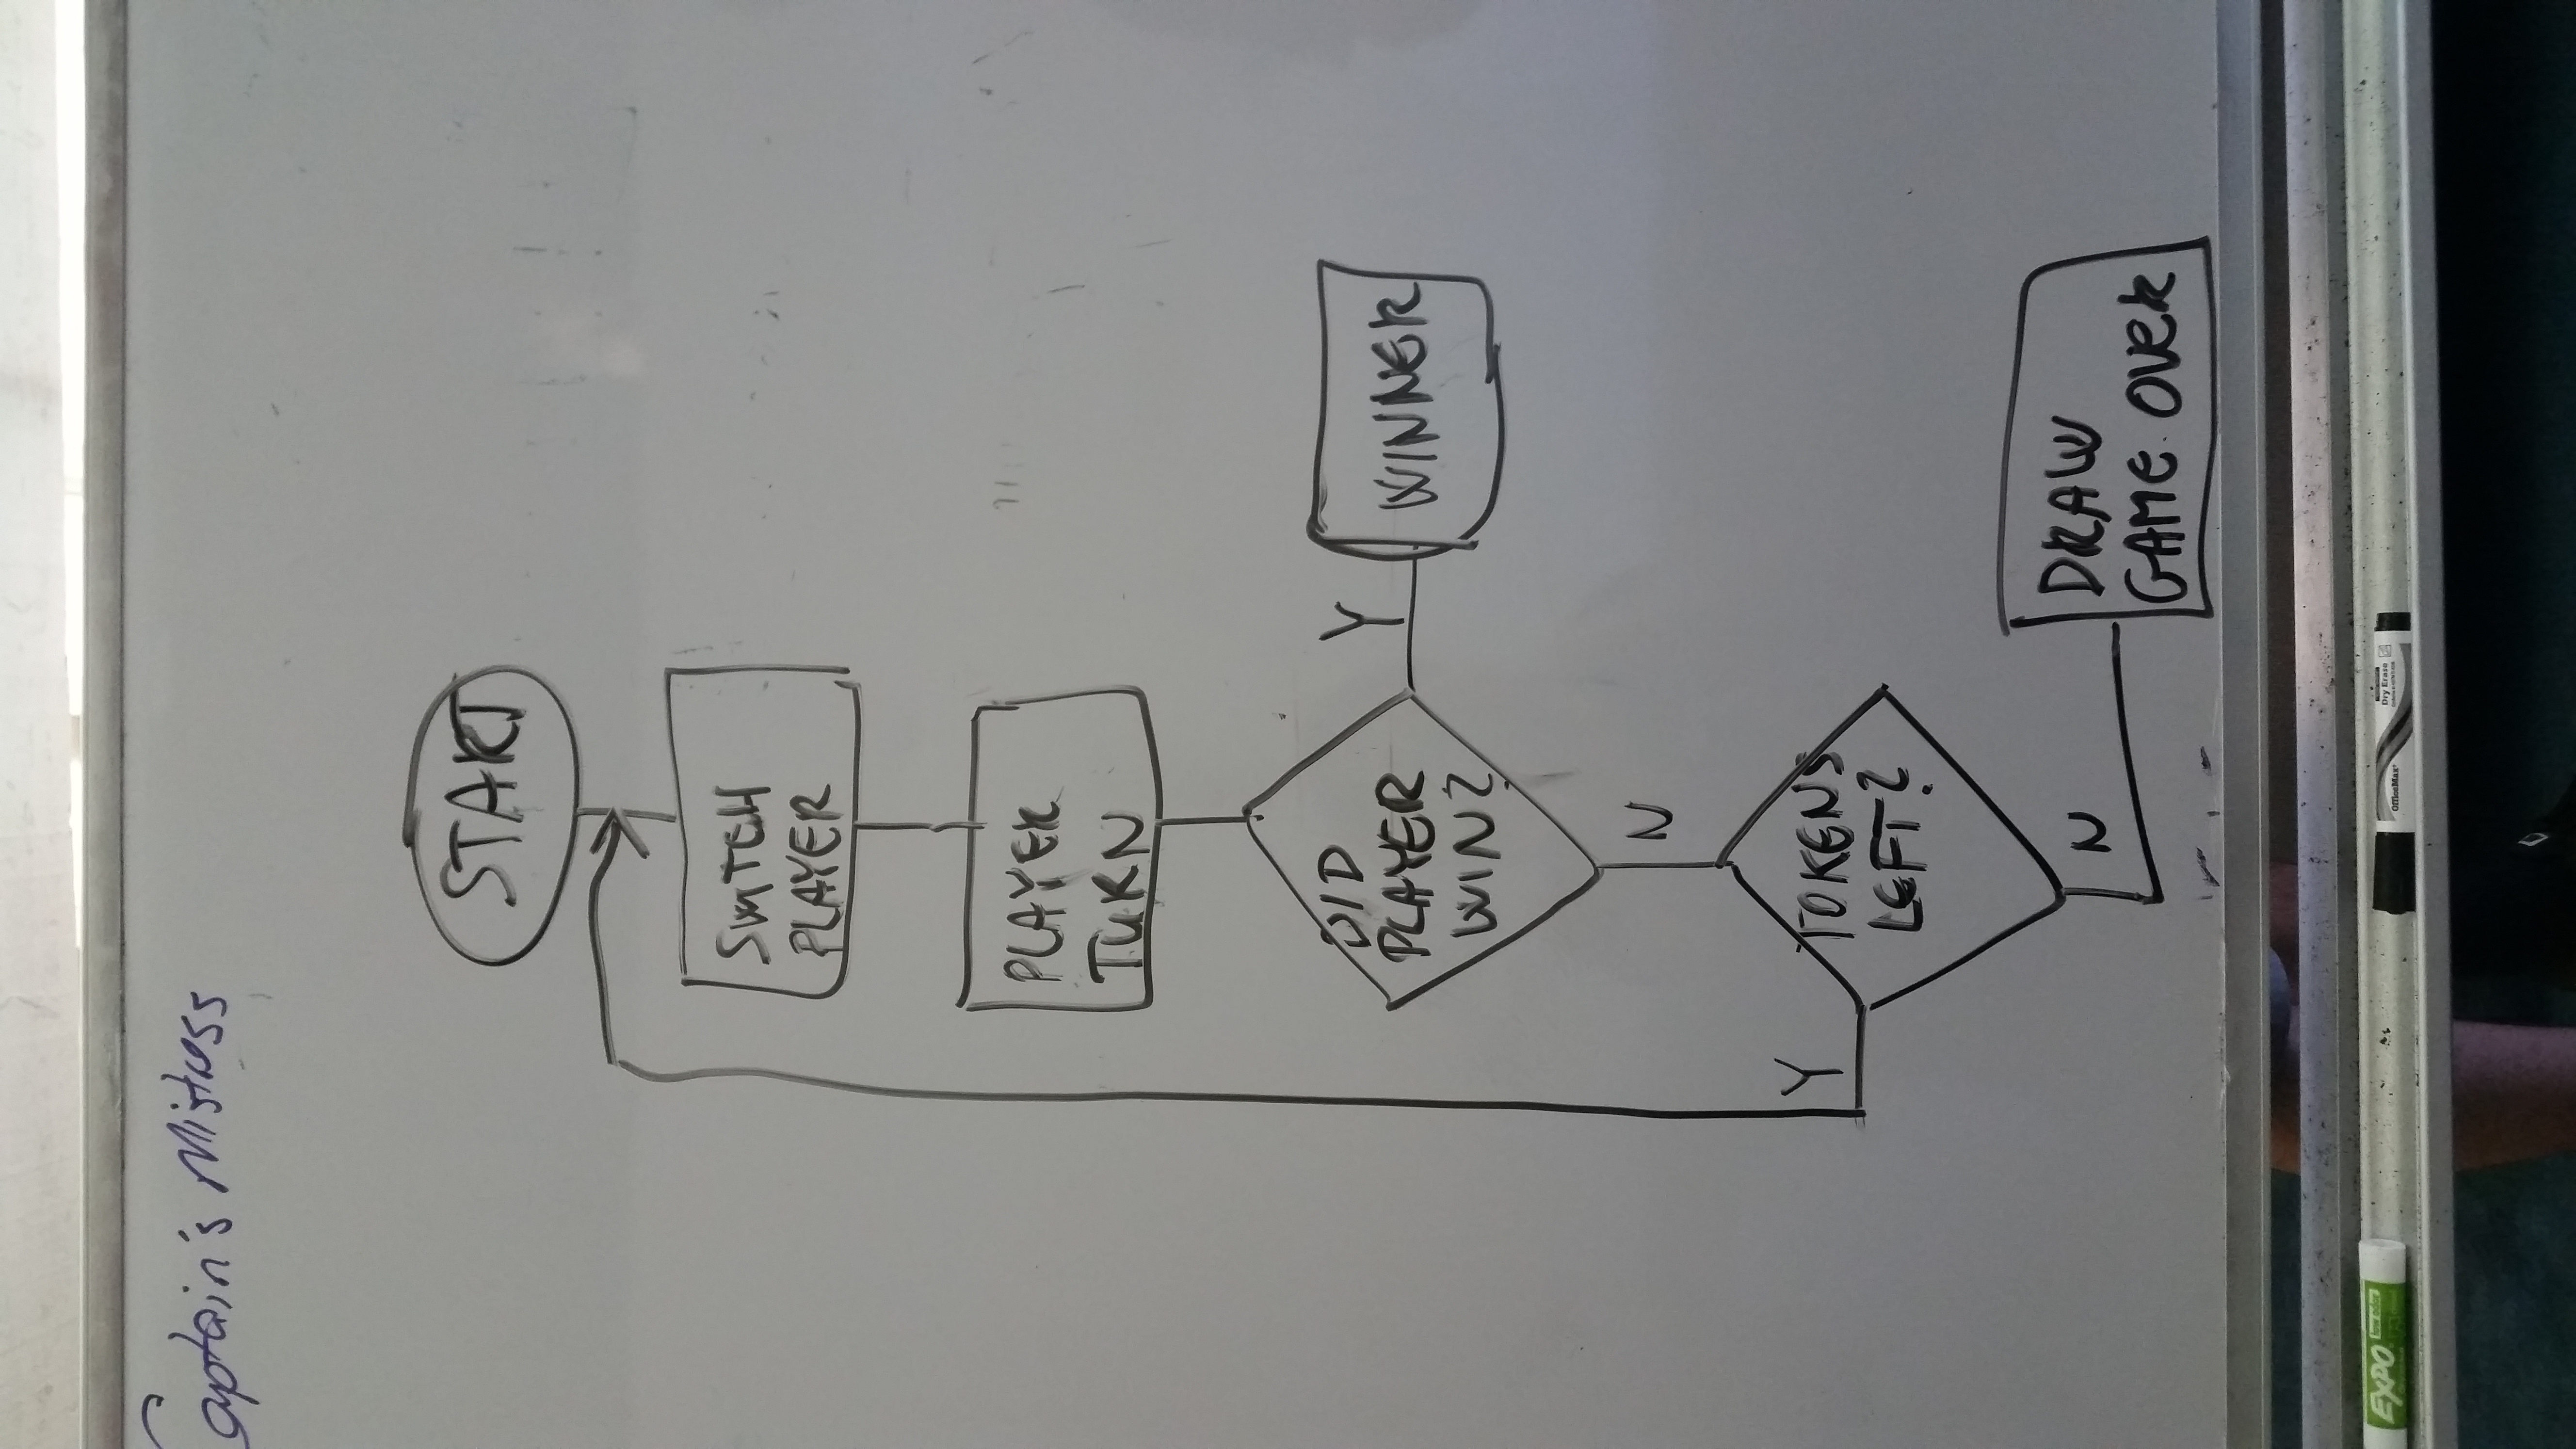 Captain's Mistress
START
SWITCH
PLAYER
PLAYER
TURN
DID
PLAYER
WIN?
Y
WINNER
N
Y
TOKENS
LEFT?
N
DRAW
GAME OVER
EXPO
low odor
OfficeMax
Dry Erase